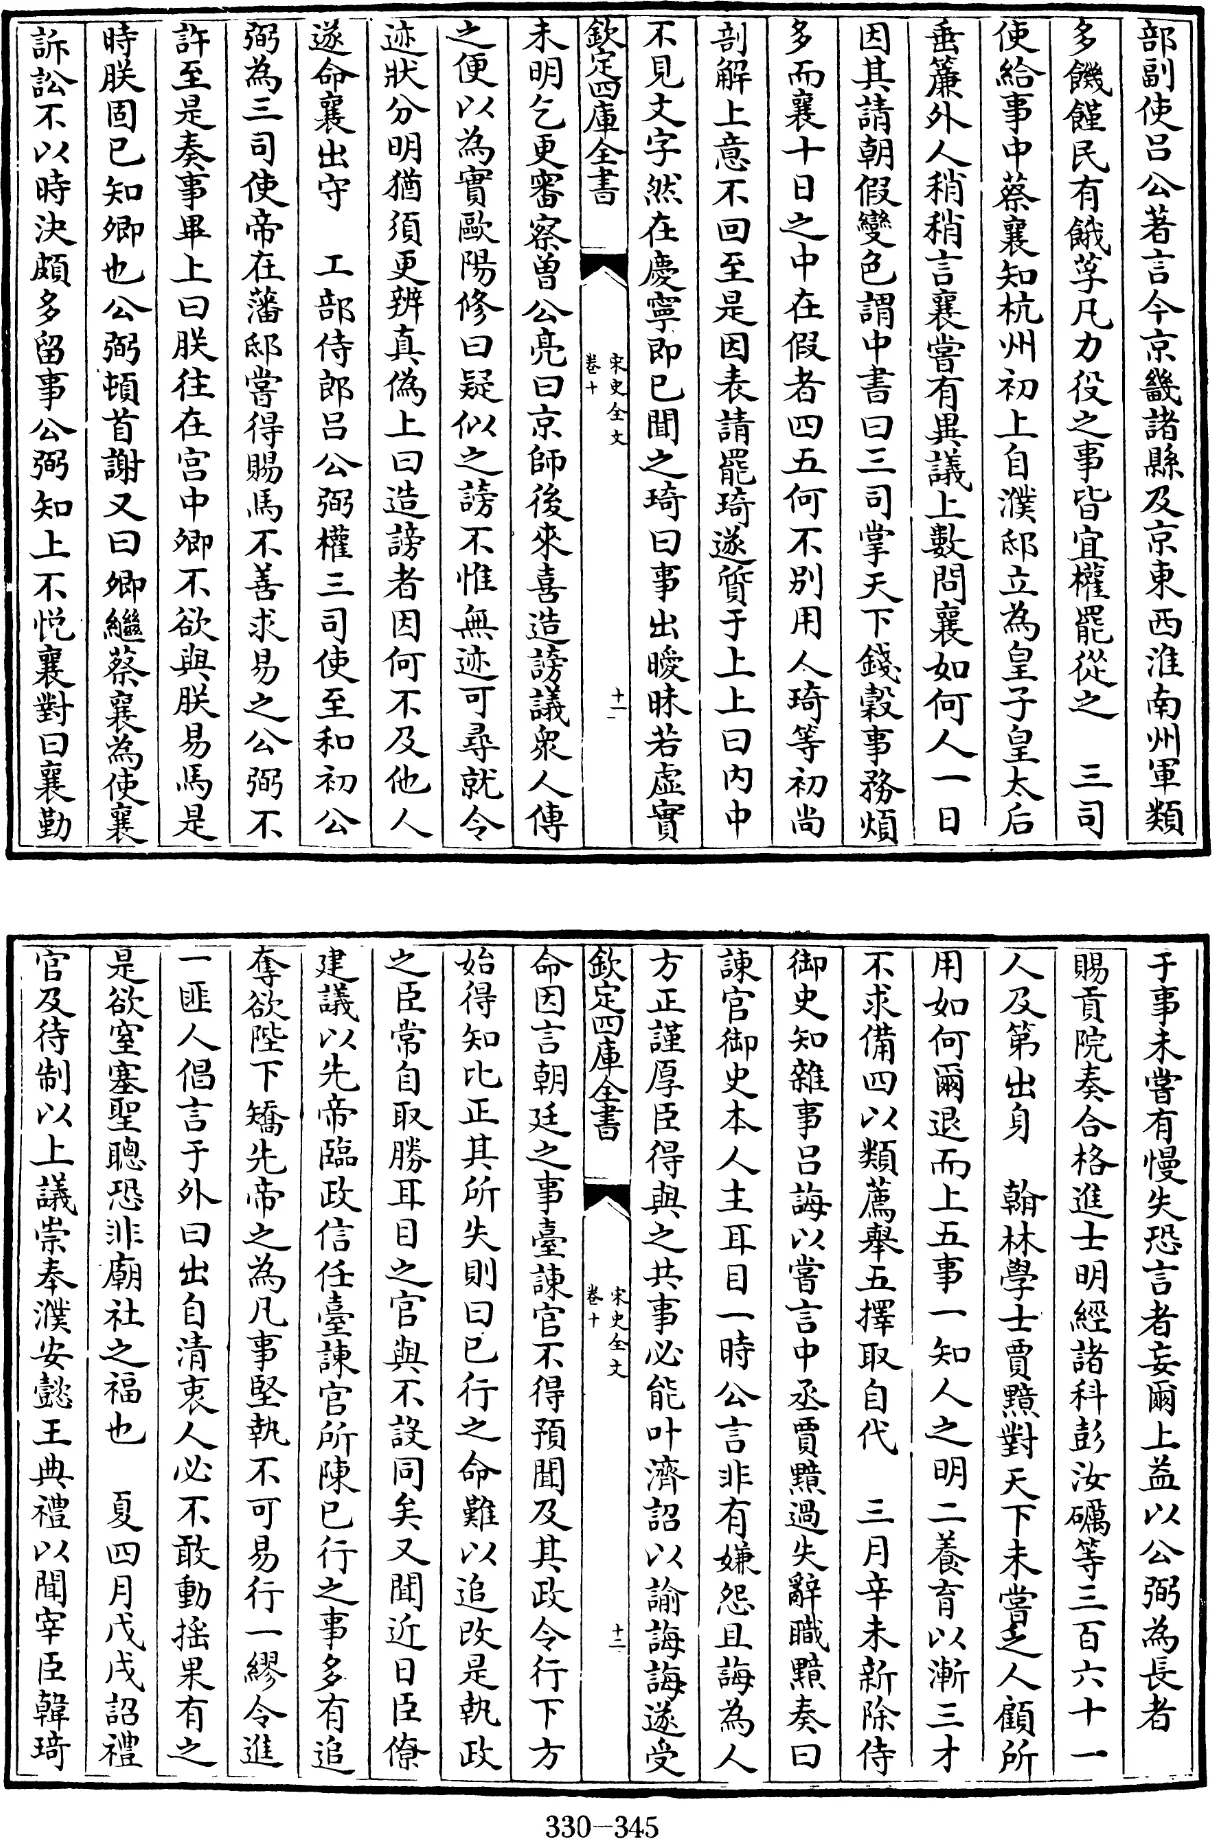 部副使吕公著言今京畿諸縣及京東西淮南州軍類
多饑饉民有餓莩凡力役之事皆宜權罷從之　三司
使給事中蔡襄知杭州初上自濮邸立為皇子皇太后
垂簾外人稍稍言襄嘗有異議上數問襄如何人一日
因其請朝假變色謂中書曰三司掌天下錢穀事務煩
多而襄十日之中在假者四五何不别用人琦等初尚
剖解上意不回至是因表請罷琦遂質于上上曰内中
不見文字然在慶寧即已聞之琦曰事出曖昧若虛實
欽定四庫全書　宋史全文卷十　十一
未明乞更審察曾公亮曰京師後來喜造謗議衆人傳
之便以為實歐陽修曰疑似之謗不惟無迹可尋就令
迹狀分明猶須更辨真偽上曰造謗者因何不及他人
遂命襄出守　工部侍郎吕公弼權三司使至和初公
弼為三司使帝在藩邸嘗得賜馬不善求易之公弼不
許至是奏事畢上曰朕往在宫中卿不欲與朕易馬是
時朕固已知卿也公弼頓首謝又曰卿繼蔡襄為使襄
訴訟不以時決頗多留事公弼知上不悦襄對曰襄勤
于事未嘗有慢失恐言者妄爾上益以公弼為長者
賜貢院奏合格進士明經諸科彭汝礪等三百六十一
人及第出身　翰林學士賈黯對天下未嘗乏人顧所
用如何爾退而上五事一知人之明二養育以漸三才
不求備四以類薦舉五擇取自代　三月辛未新除侍
御史知雜事吕誨以嘗言中丞賈黯過失辭職黯奏曰
諫官御史本人主耳目一時公言非有嫌怨且誨為人
方正謹厚臣得與之共事必能叶濟詔以諭誨誨遂受
欽定四庫全書　宋史全文卷十　十二
命因言朝廷之事臺諫官不得預聞及其政令行下方
始得知比正其所失則曰已行之命難以追改是執政
之臣常自取勝耳目之官與不設同矣又聞近日臣僚
建議以先帝臨政信任臺諫官所陳已行之事多有追
奪欲陛下矯先帝之為凡事堅執不可易行一繆令進
一匪人倡言于外曰出自清衷人必不敢動揺果有之
是欲窒塞聖聰恐非廟社之福也　夏四月戊戌詔禮
官及待制以上議崇奉濮安懿王典禮以聞宰臣韓琦
330—345